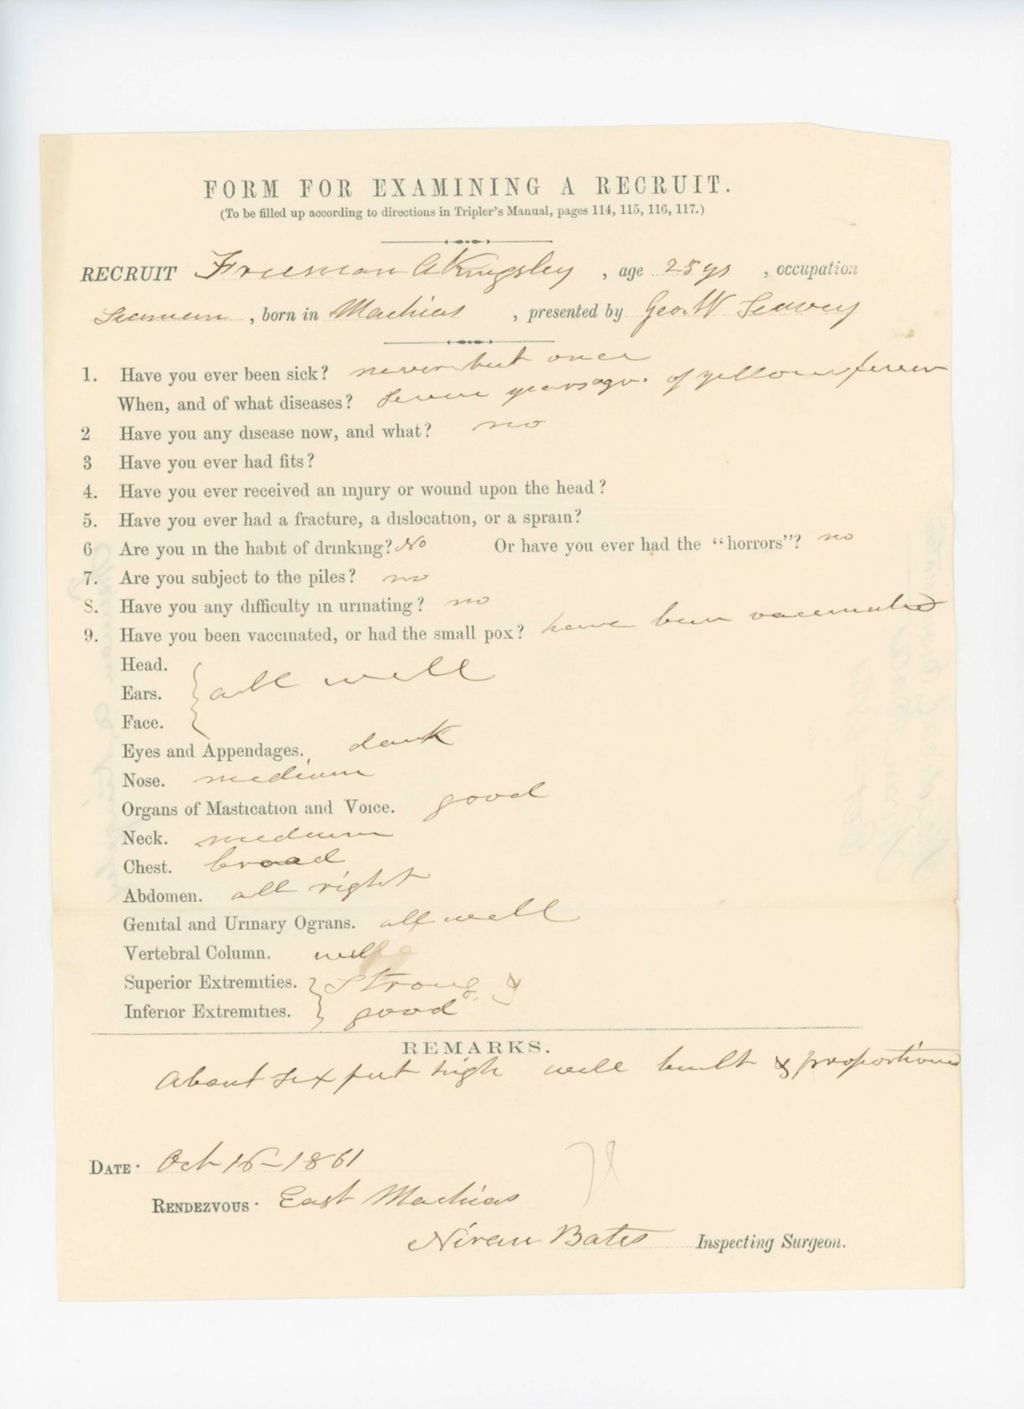 FORM FOR EXAMINING A RECRUIT.
(To be filled up according to directions in Tripler's Manual, pages 114, 115, 116, 117.)
RECRUIT Freeman A Kingsley , age 25 ys , occupation
Seaman , born in Machias , presented by Geo. W Seavey
1. Have you ever been sick? never but once
When, and of what diseases? Seven years ago. of yellow fever
2 Have you any disease now, and what? no
3 Have you ever had fits?
4. Have you ever received an injury or wound upon the head?
5. Have you ever had a fracture, a dislocation, or a sprain?
6 Are you in the habit of drinking? No Or have you ever had the "horrors"? no
7. Are you subject to the piles? no
8. Have you any difficulty in urinating? no
9. Have you been vaccinated, or had the small pox? have been vaccinated
Head.
Ears. all well
Face.
Eyes and Appendages. dark
Nose. medium
Organs of Mastication and Voice. good
Neck. medium
Chest. broad
Abdomen. all right
Genital and Urinary Ograns. all well
Vertebral Column. well
Superior Extremities. Strong &
Inferior Extremities. good
REMARKS.
About six feet high well built & proportioned
DATE. Oct 16-1861
RENDEZVOUS. East Machias
Niran Bates Inspecting Surgeon.